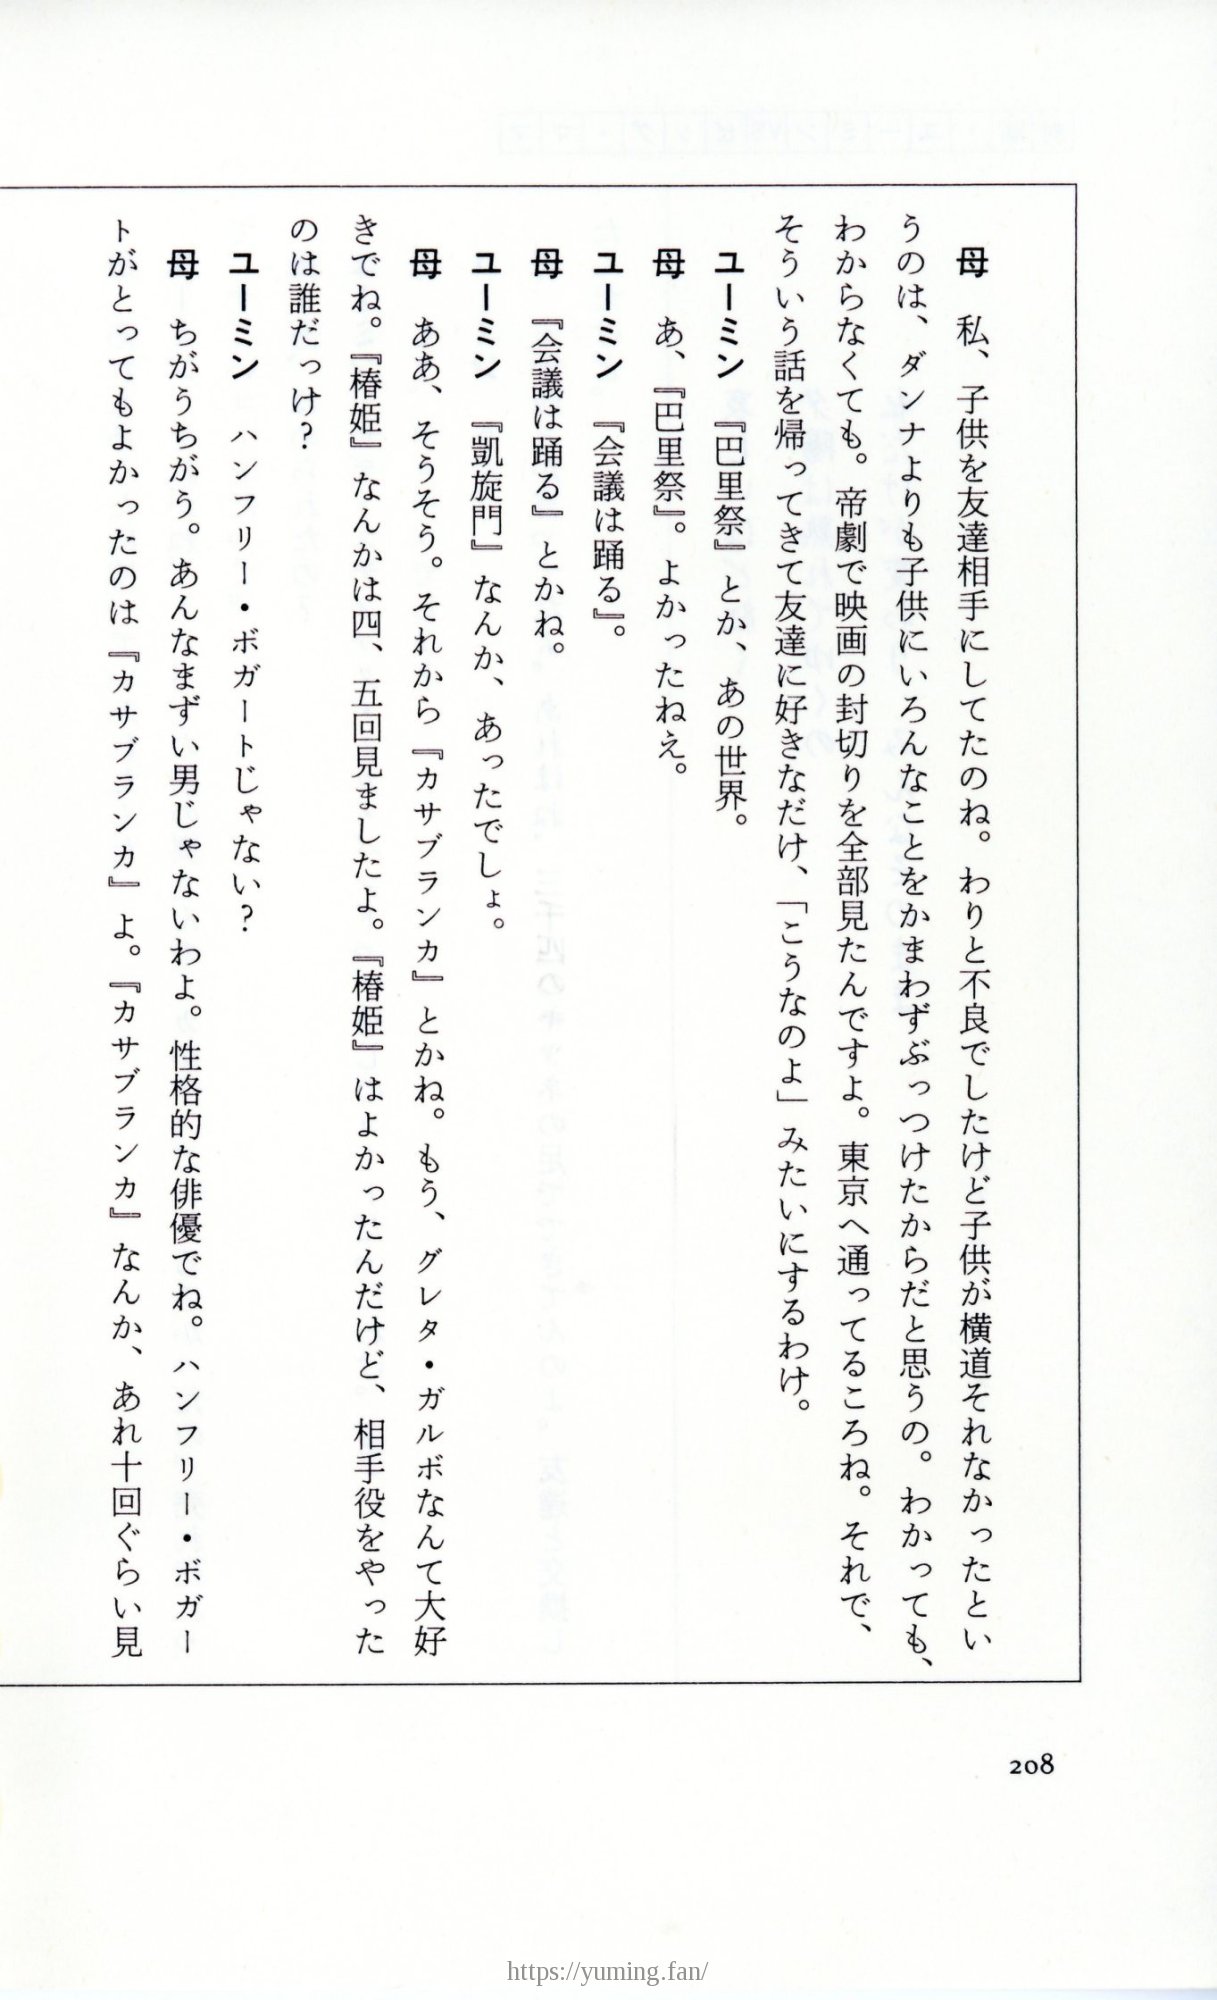 母　私、子供を友達相手にしてたのね。わりと不良でしたけど子供が横道それなかったとい
うのは、ダンナよりも子供にいろんなことをかまわずぶっつけたからだと思うの。わかっても、
わからなくても。帝劇で映画の封切りを全部見たんですよ。東京へ通ってるころね。それで、
そういう話を帰ってきて友達に好きなだけ、「こうなのよ」みたいにするわけ。
ユーミン　『巴里祭』とか、あの世界。
母　あ、『巴里祭』。よかったねえ。
ユーミン　『会議は踊る』。
母　『会議は踊る』とかね。
ユーミン　『凱旋門』なんか、あったでしょ。
母　ああ、そうそう。それから『カサブランカ』とかね。もう、グレタ・ガルボなんて大好
きでね。『椿姫』なんかは四、五回見ましたよ。『椿姫』はよかったんだけど、相手役をやった
のは誰だっけ？
ユーミン　ハンフリー・ボガートじゃない？
母　ちがうちがう。あんなまずい男じゃないわよ。性格的な俳優でね。ハンフリー・ボガー
トがとってもよかったのは『カサブランカ』よ。『カサブランカ』なんか、あれ十回ぐらい見
208
https://yuming.fan/